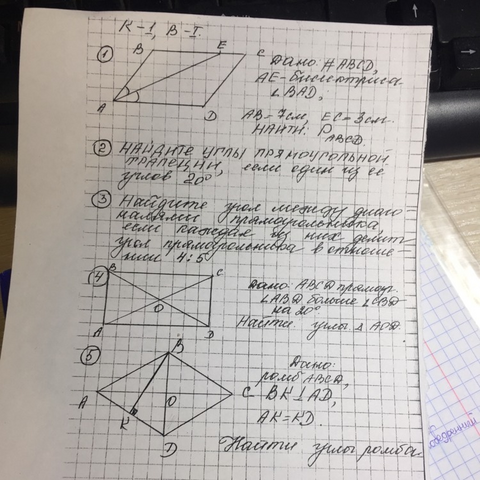 К-1, В-I.
① B E C Дано #ABCD,
AE-биссектриса
∠BAD,
A D AB=7см, EC=3см
Найти: P ABCD.
② НАЙДИТЕ УГЛЫ ПРЯМОУГОЛЬНОЙ
ТРАПЕЦИИ, если один из ее
углов 20°
③ Найдите угол между диаго-
налями прямоугольника,
если каждая из них делит
угол прямоугольника в отноше-
нии 4:5
④ B C Дано: ABCD прямоуг.
∠ABD больше ∠CBD
O на 20°
A D Найти углы Δ AOD.
⑤ B Дано:
ромб ABCD,
A O C BK⊥AD,
K AK=KD.
D Найти углы ромба